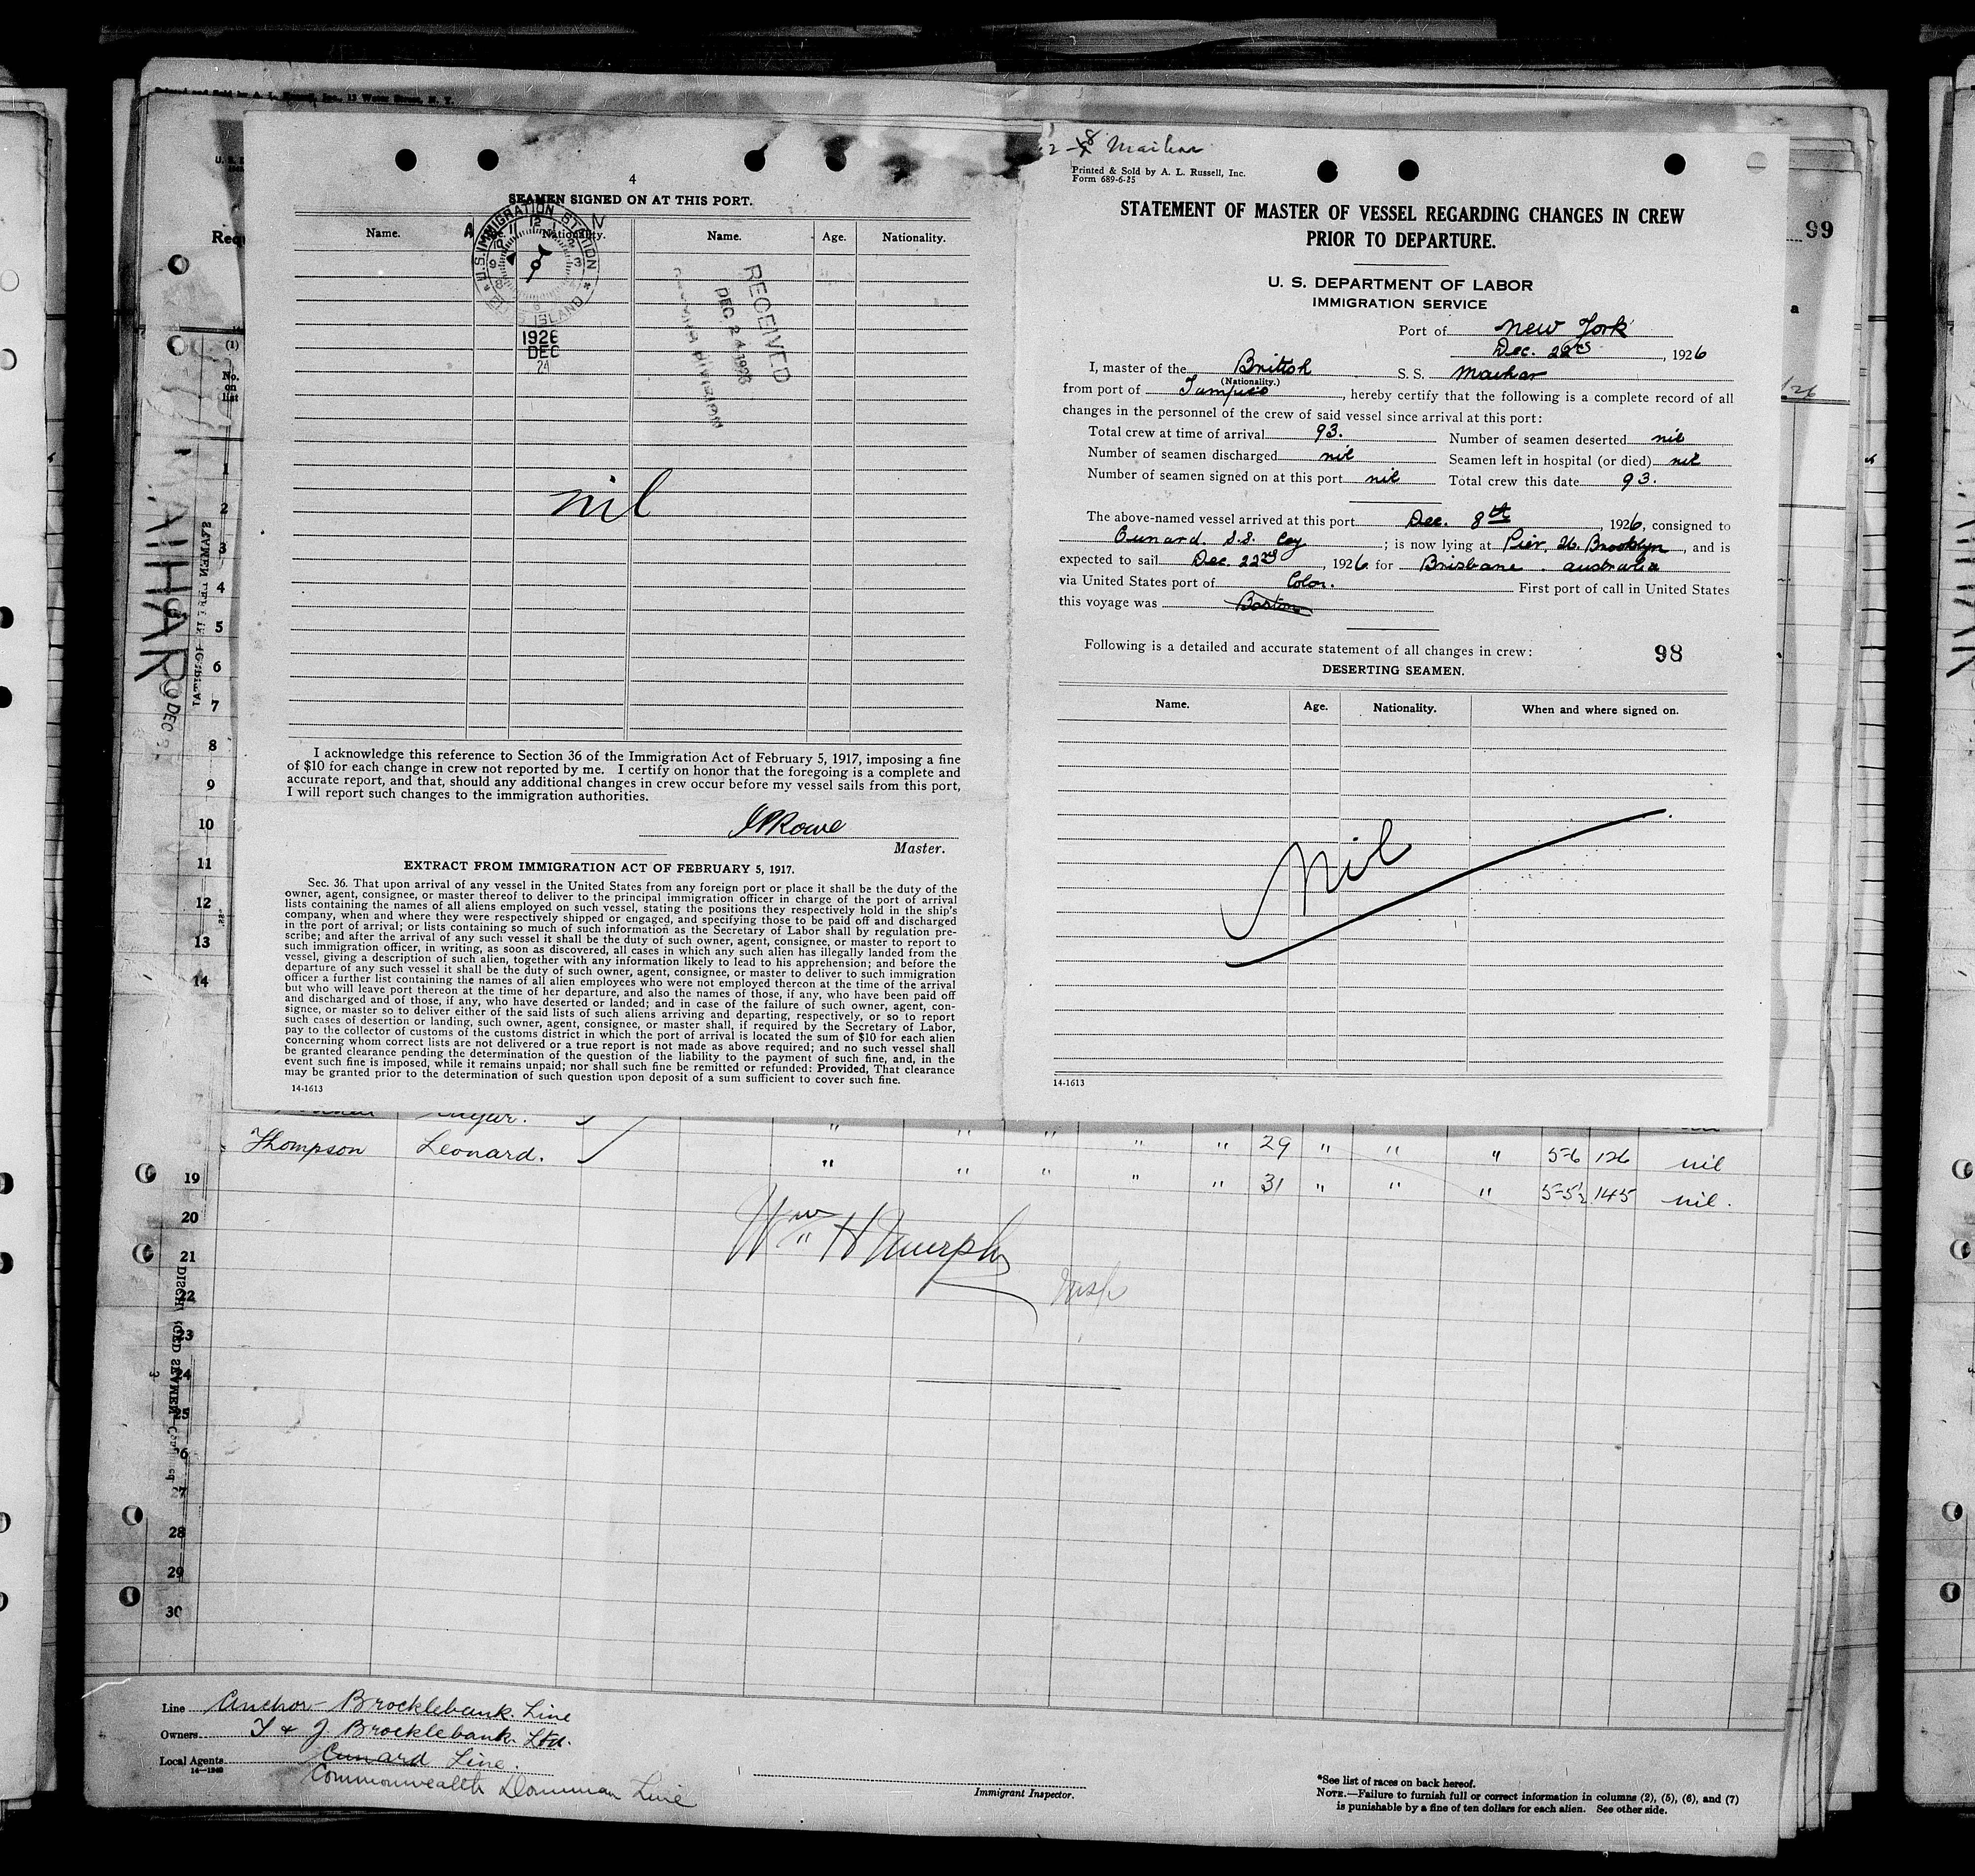 Printed and Sold by A. L. Russell, Inc., 13 Water Street, N. Y.
4
SEAMEN SIGNED ON AT THIS PORT.
Name.
Nationality.
Name.
Age.
Nationality.
U.S. IMMIGRATION STATION
ELLIS ISLAND
1926
DEC
24
RECEIVED
DEC 24 1926
DIVISION
nil
I acknowledge this reference to Section 36 of the Immigration Act of February 5, 1917, imposing a fine
of $10 for each change in crew not reported by me. I certify on honor that the foregoing is a complete and
accurate report, and that, should any additional changes in crew occur before my vessel sails from this port,
I will report such changes to the immigration authorities.
Rowe
Master.
EXTRACT FROM IMMIGRATION ACT OF FEBRUARY 5, 1917.
Sec. 36. That upon arrival of any vessel in the United States from any foreign port or place it shall be the duty of the
owner, agent, consignee, or master thereof to deliver to the principal immigration officer in charge of the port of arrival
lists containing the names of all aliens employed on such vessel, stating the positions they respectively hold in the ship's
company, when and where they were respectively shipped or engaged, and specifying those to be paid off and discharged
in the port of arrival; or lists containing so much of such information as the Secretary of Labor shall by regulation pre-
scribe; and after the arrival of any such vessel it shall be the duty of such owner, agent, consignee, or master to report to
such immigration officer, in writing, as soon as discovered, all cases in which any such alien has illegally landed from the
vessel, giving a description of such alien, together with any information likely to lead to his apprehension; and before the
departure of any such vessel it shall be the duty of such owner, agent, consignee, or master to deliver to such immigration
officer a further list containing the names of all alien employees who were not employed thereon at the time of the arrival
but who will leave port thereon at the time of her departure, and also the names of those, if any, who have been paid off
and discharged and of those, if any, who have deserted or landed; and in case of the failure of such owner, agent, con-
signee, or master so to deliver either of the said lists of such aliens arriving and departing, respectively, or so to report
such cases of desertion or landing, such owner, agent, consignee, or master shall, if required by the Secretary of Labor,
pay to the collector of customs of the customs district in which the port of arrival is located the sum of $10 for each alien
concerning whom correct lists are not delivered or a true report is not made as above required; and no such vessel shall
be granted clearance pending the determination of the question of the liability to the payment of such fine, and, in the
event such fine is imposed, while it remains unpaid; nor shall such fine be remitted or refunded: Provided, That clearance
may be granted prior to the determination of such question upon deposit of a sum sufficient to cover such fine.
14-1613
Maihar
Printed & Sold by A. L. Russell, Inc.
Form 689-6-25
STATEMENT OF MASTER OF VESSEL REGARDING CHANGES IN CREW
PRIOR TO DEPARTURE.
U. S. DEPARTMENT OF LABOR
IMMIGRATION SERVICE
Port of New York
Dec. 22nd, 1926
I, master of the British S. S. Maihar
(Nationality.)
from port of Tampico, hereby certify that the following is a complete record of all
changes in the personnel of the crew of said vessel since arrival at this port:
Total crew at time of arrival 93. Number of seamen deserted nil
Number of seamen discharged nil Seamen left in hospital (or died) nil
Number of seamen signed on at this port nil Total crew this date 93.
The above-named vessel arrived at this port Dec. 8th, 1926, consigned to
Cunard. S.S. Coy; is now lying at Pier, 26. Brooklyn, and is
expected to sail Dec. 22nd, 1926 for Brisbane. Australia
via United States port of Colon. First port of call in United States
this voyage was Boston
Following is a detailed and accurate statement of all changes in crew:
98
DESERTING SEAMEN.
Name. Age. Nationality. When and where signed on.
Nil
14-1613
99
Req
(1)
No.
on
list
MAIHAR
1
2
3
4
5
6
7
8
9
10
11
12
13
14
Thompson Leonard. " " " " " 29 " " " 5-6 126 nil
19 " " " " " 31 " " " 5-5½ 145 nil.
20
Wm H Murphy
21
Insp
22
23
24
25
26
27
28
29
30
DISCHARGED SEAMEN—Continued
3
Line Anchor-Brocklebank. Line
Owners T & J. Brocklebank Ltd.
Local Agents Cunard Line.
14—1240
Commonwealth Dominion Line
Immigrant Inspector.
*See list of races on back hereof.
NOTE.—Failure to furnish full or correct information in columns (2), (5), (6), and (7)
is punishable by a fine of ten dollars for each alien. See other side.